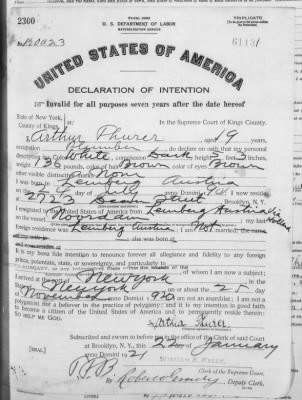 Form 2203
TRIPLICATE
2300
U. S. DEPARTMENT OF LABOR
NATURALIZATION SERVICE
UNITED STATES OF AMERICA
DECLARATION OF INTENTION
Invalid for all purposes seven years after the date hereof
State of New York,
County of Kings, ss:
In the Supreme Court of Kings County.
Arthur Thurer, aged 19 years,
occupation Plumber, do declare on oath that my personal
description is: Color White, complexion Dark, height 5 feet 3 inches,
weight 138 pounds, color of hair Brown, color of eyes Brown
other visible distinctive marks None
I was born in Lemberg Austria
anno Domini; I now reside
at Street, Brooklyn, N.Y.
I emigrated to the United States of America from Holland
on the vessel; my last
foreign residence was Lemberg Austria; I am not married; the name
she was born at
It is my bona fide intention to renounce forever all allegiance and fidelity to any foreign
prince, potentate, state, or sovereignty, and particularly to
of whom I am now a subject;
I arrived at the port of New York
New York on or about the 25 day
November, anno Domini 1920; I am not an anarchist; I am not a
polygamist nor a believer in the practice of polygamy; and it is my intention in good faith
to become a citizen of the United States of America and to permanently reside therein:
SO HELP ME GOD.
Arthur Thurer
Subscribed and sworn to before me in the office of the Clerk of said Court
at Brooklyn, N.Y., this day of January
anno Domini 1921
[SEAL]
Clerk of the Supreme Court.
By Deputy Clerk.